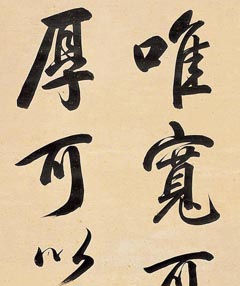 唯寬可
厚可以